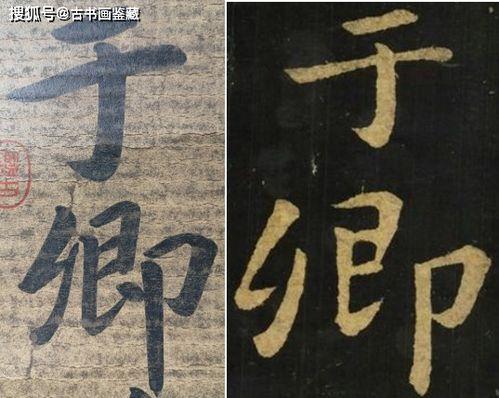 搜狐号@古书画鉴藏
于卿
于卿